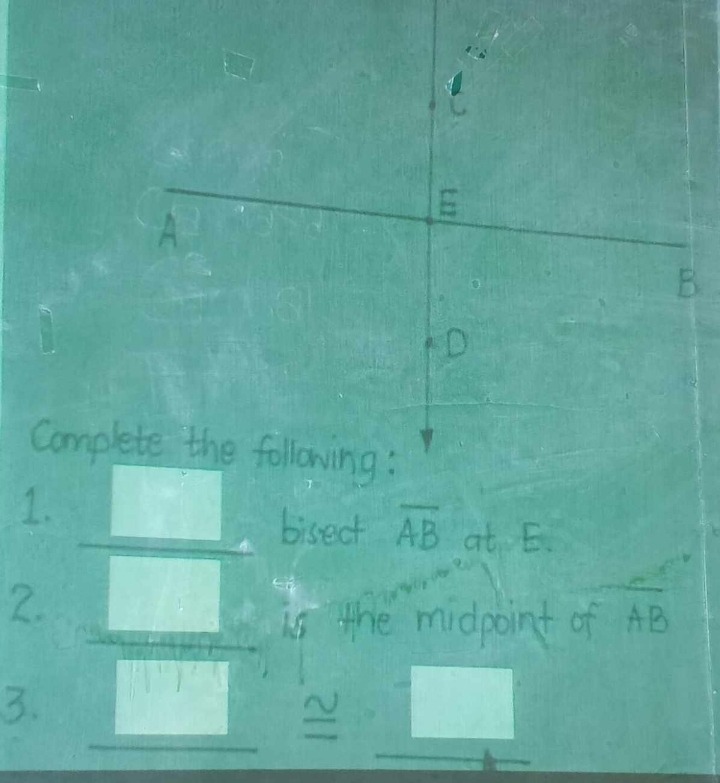 C
E
A
B
D
Complete the following:
1. bisect AB at E.
2. is the midpoint of AB
3. ≅